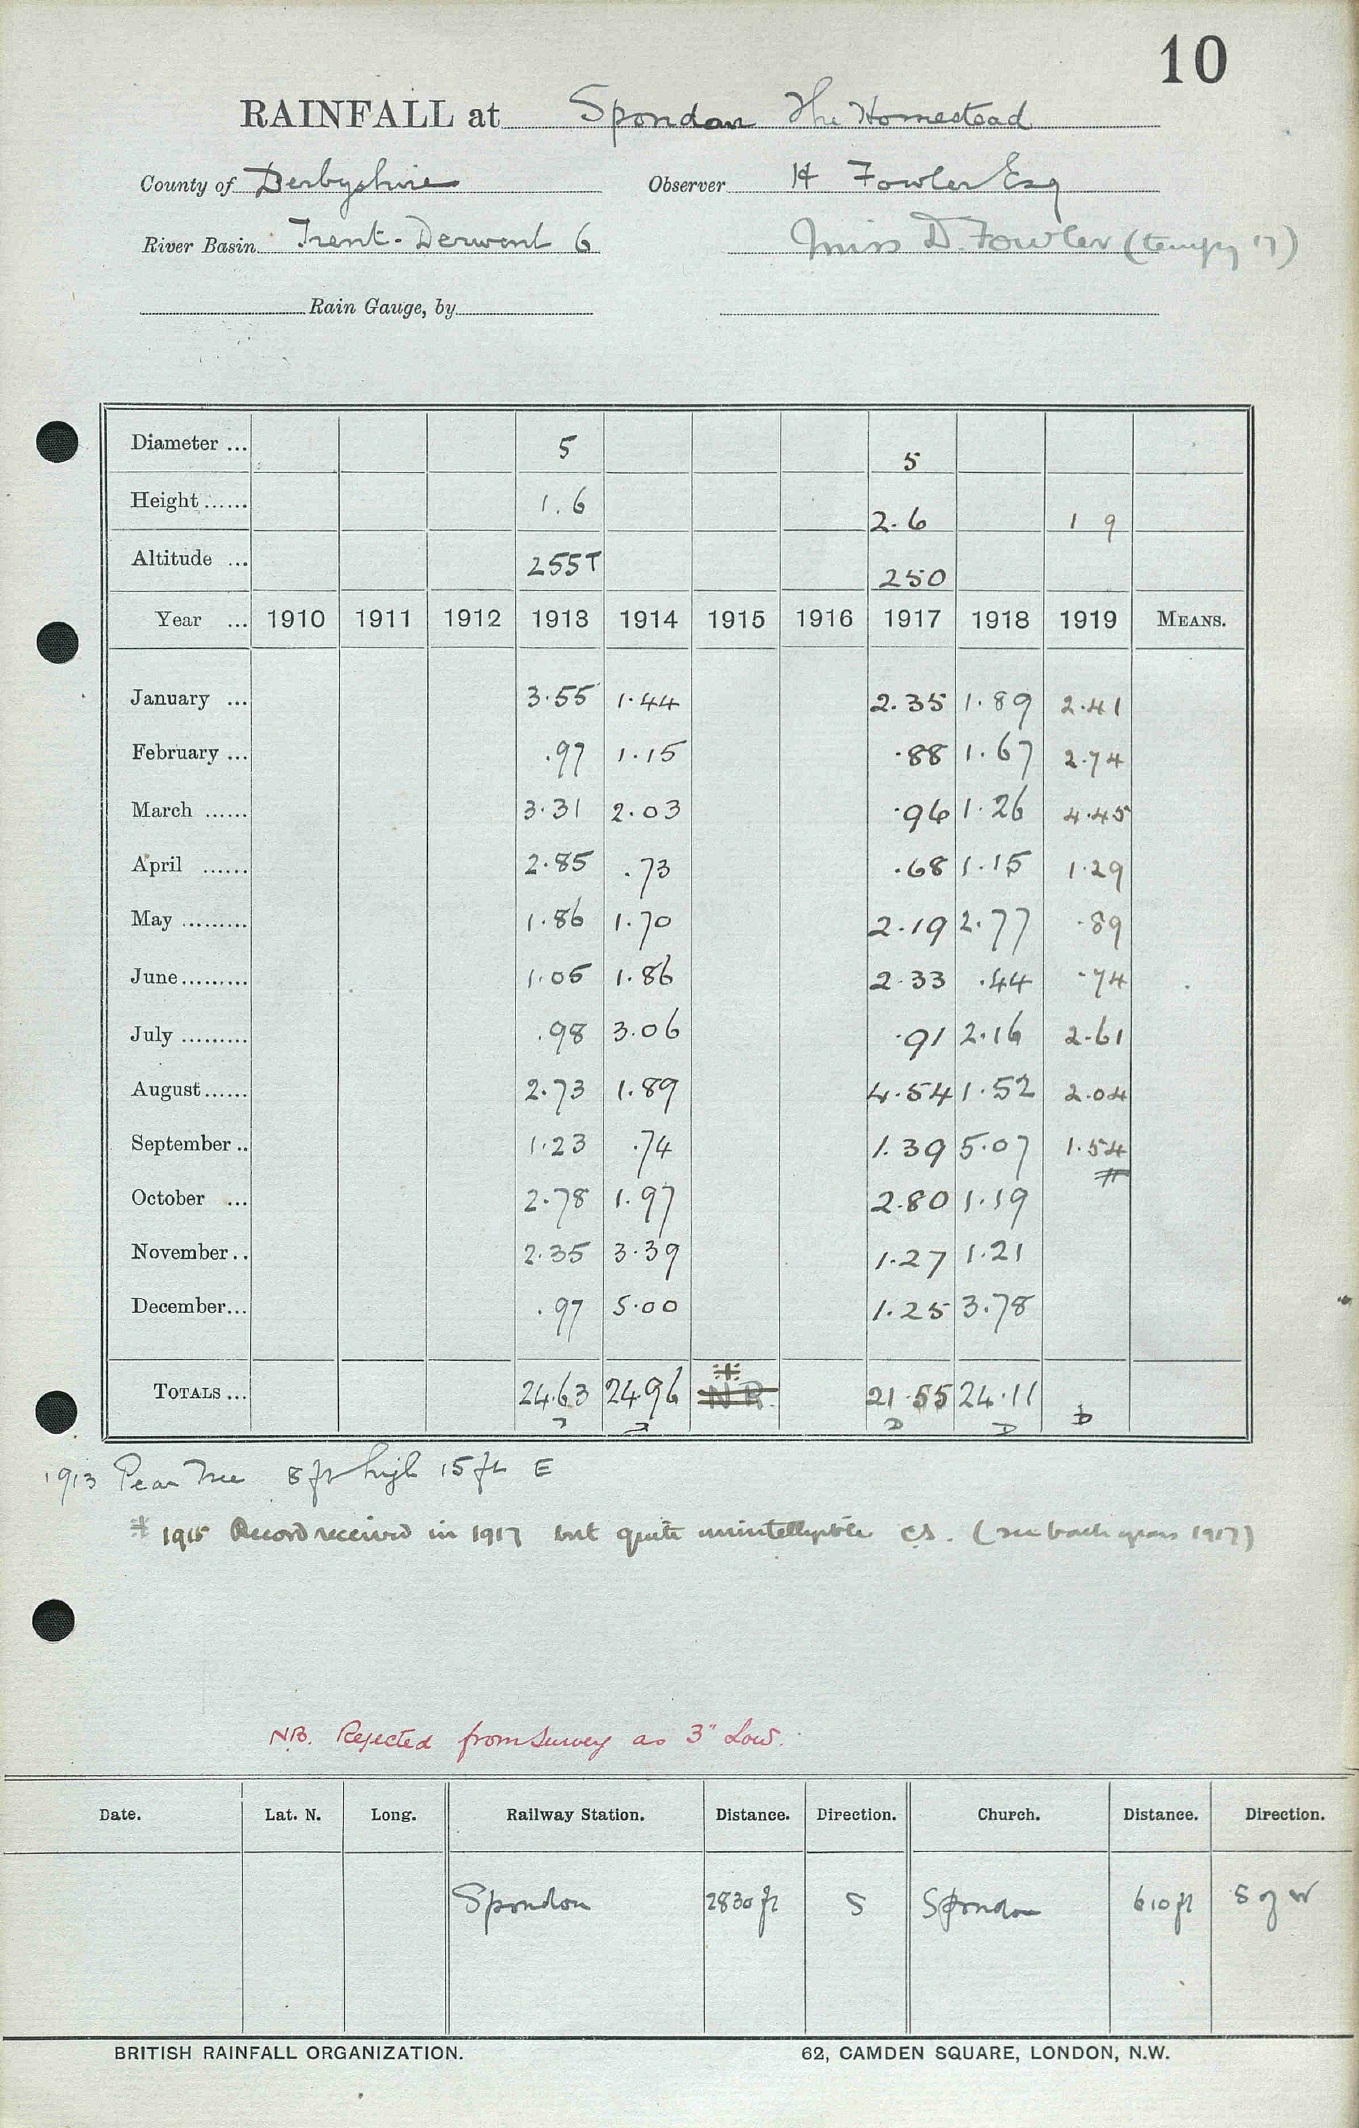 10
RAINFALL at Spondon The Homestead
County of Derbyshire Observer H Fowler Esq
River Basin Trent-Derwent 6 Miss D. Fowler (tempy 17)
Rain Gauge, by
Diameter ... 5 5
Height ...... 1.6 2.6 1 9
Altitude ... 255T 250
Year ... 1910 1911 1912 1913 1914 1915 1916 1917 1918 1919 MEANS.
January ... 3.55 1.44 2.35 1.89 2.41
February ... .97 1.15 .88 1.67 2.74
March ...... 3.31 2.03 .96 1.26 4.45
April ...... 2.85 .73 .68 1.15 1.29
May ......... 1.86 1.70 2.19 2.77 .89
June ......... 1.05 1.86 2.33 .44 .74
July ......... .98 3.06 .91 2.16 2.61
August ...... 2.73 1.89 4.54 1.52 2.04
September .. 1.23 .74 1.39 5.07 1.54
October ... 2.78 1.97 2.80 1.19
November .. 2.35 3.39 1.27 1.21
December ... .97 5.00 1.25 3.78
TOTALS ... 24.63 24.96 NR. 21.55 24.11
D D D D D
1913 Pear Tree 8 ft high 15 ft E
1915 Record received in 1917 but quite unintelligible CS. (see back years 1917)
NB. Rejected from Survey as 3" Low.
Date. Lat. N. Long. Railway Station. Distance. Direction. Church. Distance. Direction.
Spondon 2830 ft S Spondon 610 ft S of W
BRITISH RAINFALL ORGANIZATION. 62, CAMDEN SQUARE, LONDON, N.W.